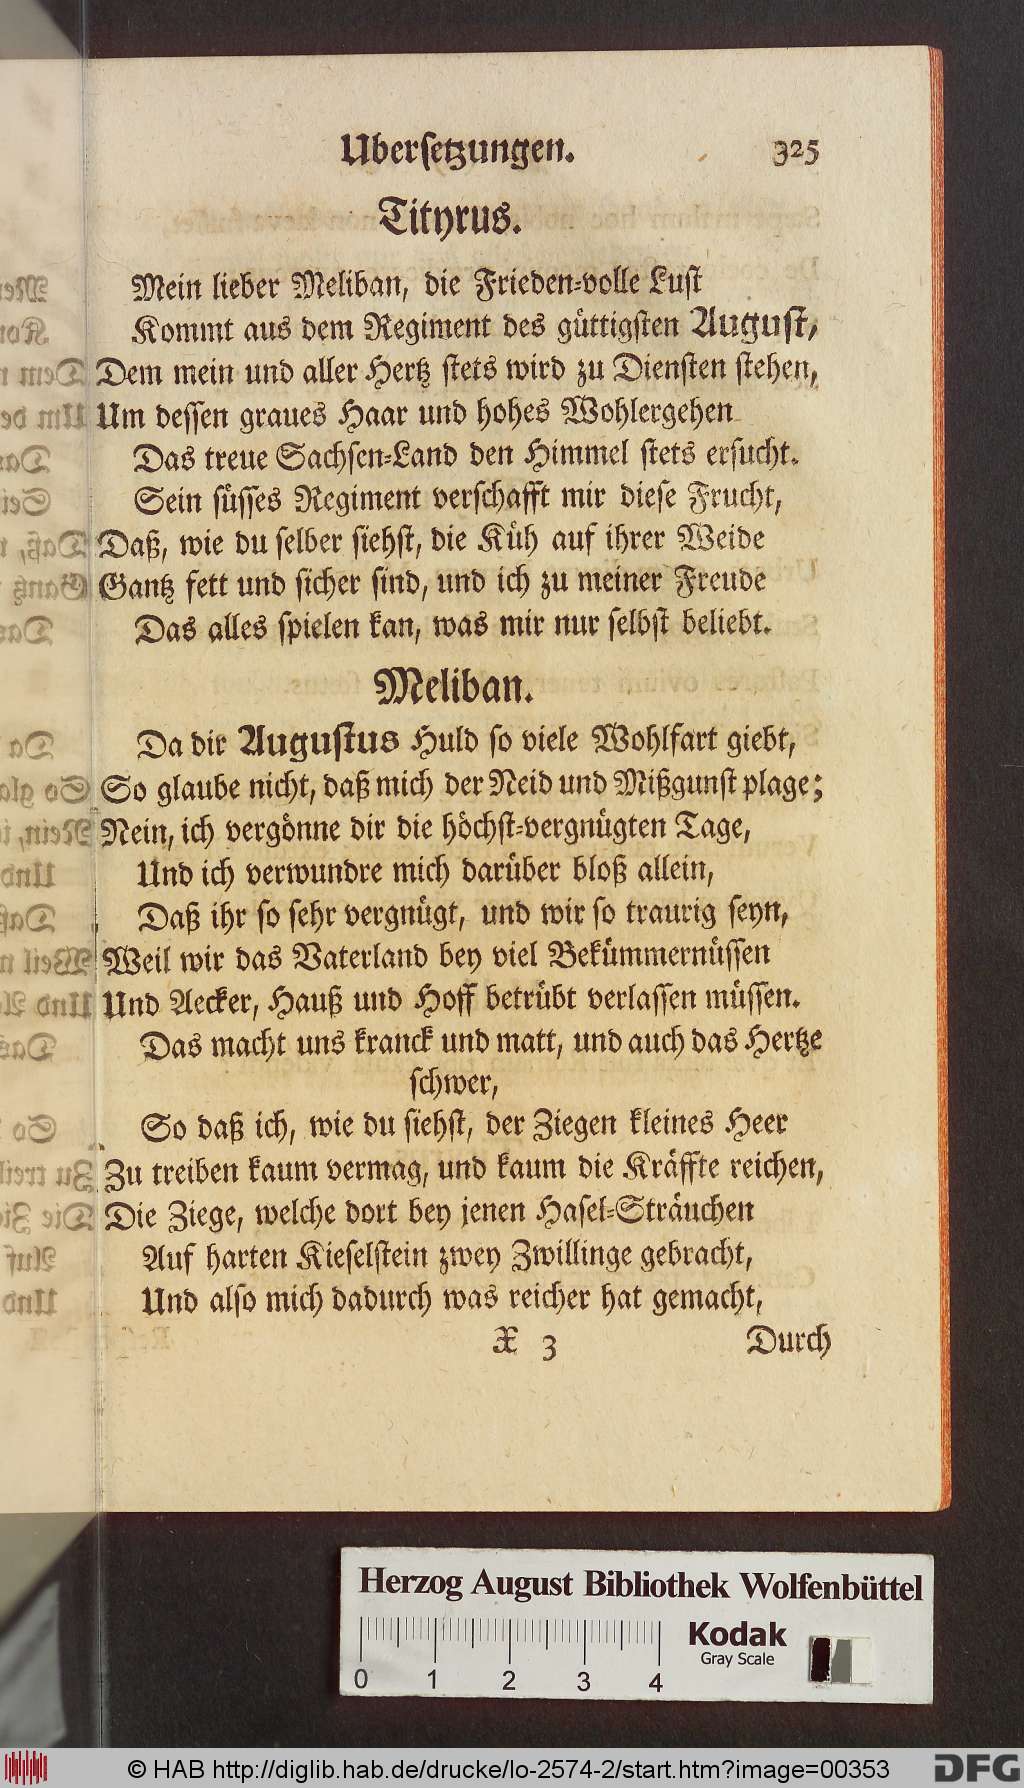 Ubersetzungen. 325
Tityrus.
Mein lieber Meliban, die Frieden-volle Lust
Kommt aus dem Regiment des güttigsten August,
Dem mein und aller Hertz stets wird zu Diensten stehen,
Um dessen graues Haar und hohes Wohlergehen
Das treue Sachsen-Land den Himmel stets ersucht.
Sein süsses Regiment verschafft mir diese Frucht,
Daß, wie du selber siehst, die Küh auf ihrer Weide
Gantz fett und sicher sind, und ich zu meiner Freude
Das alles spielen kan, was mir nur selbst beliebt.
Meliban.
Da dir Augustus Huld so viele Wohlfart giebt,
So glaube nicht, daß mich der Neid und Mißgunst plage;
Nein, ich vergönne dir die höchst-vergnügten Tage,
Und ich verwundre mich darüber bloß allein,
Daß ihr so sehr vergnügt, und wir so traurig seyn,
Weil wir das Vaterland bey viel Bekümmernüssen
Und Aecker, Hauß und Hoff betrübt verlassen müssen.
Das macht uns kranck und matt, und auch das Hertze
schwer,
So daß ich, wie du siehst, der Ziegen kleines Heer
Zu treiben kaum vermag, und kaum die Kräffte reichen,
Die Ziege, welche dort bey jenen Hasel-Sträuchen
Auf harten Kieselstein zwey Zwillinge gebracht,
Und also mich dadurch was reicher hat gemacht,
X 3 Durch
Herzog August Bibliothek Wolfenbüttel
Kodak
Gray Scale
0 1 2 3 4
© HAB http://diglib.hab.de/drucke/lo-2574-2/start.htm?image=00353
DFG